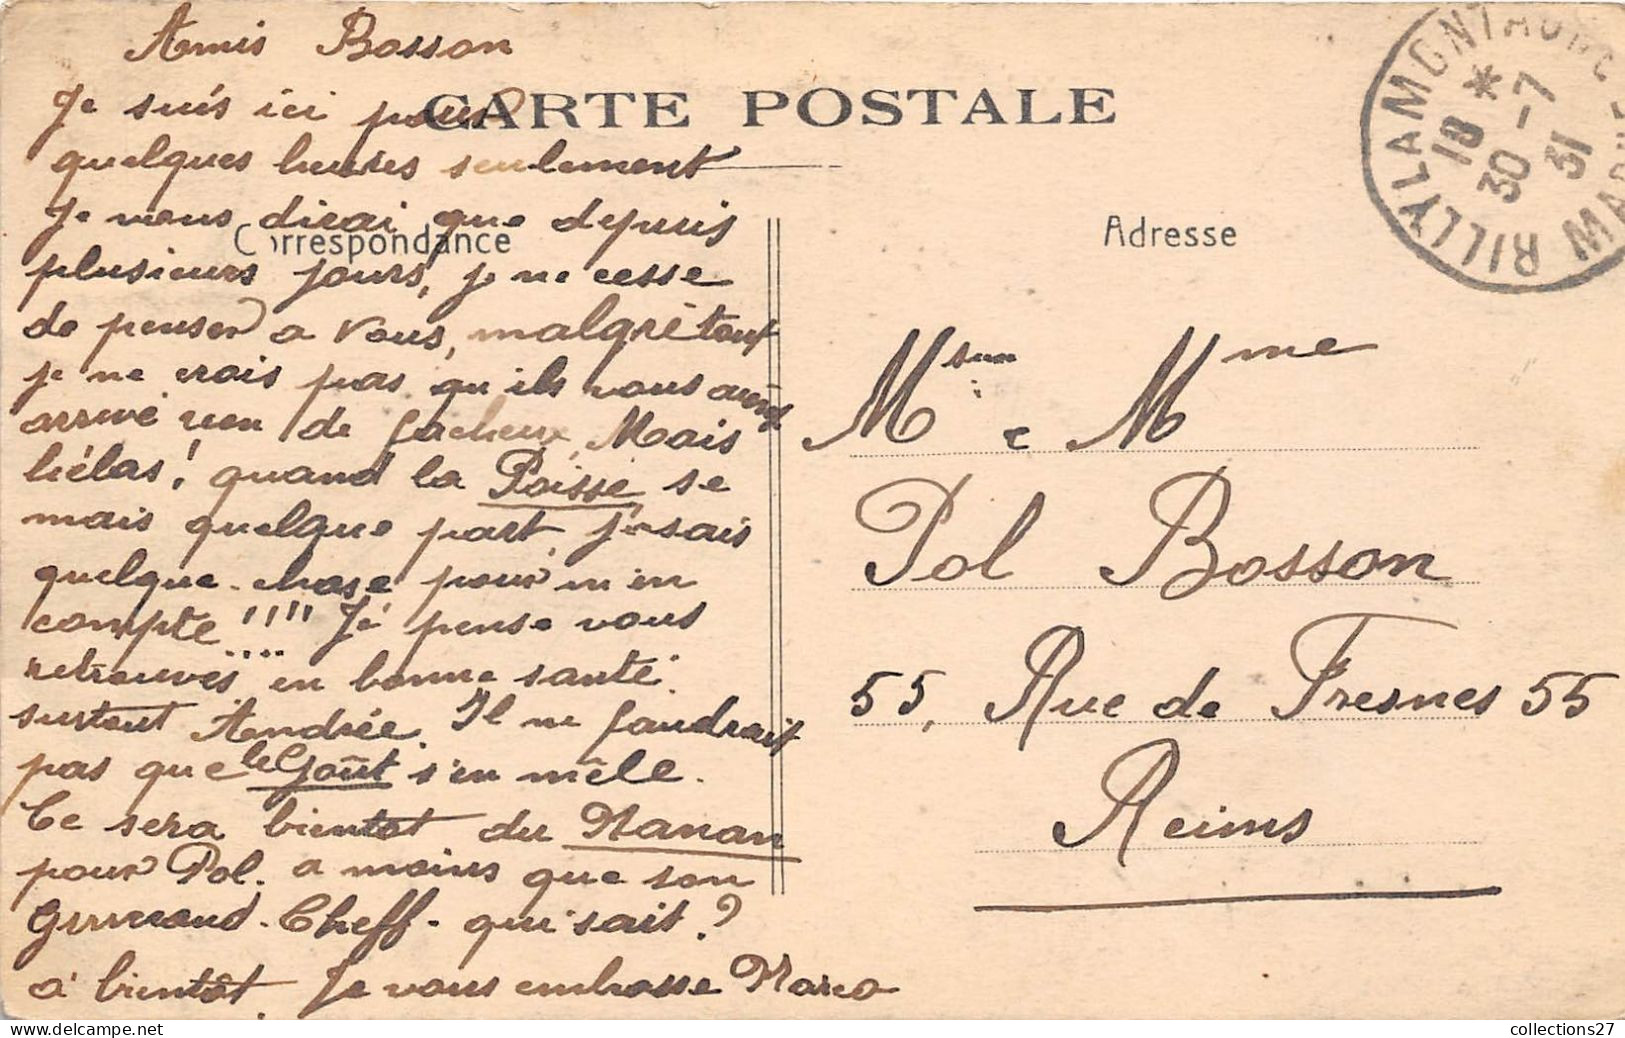 Amis Bosson
Je suis ici pour
CARTE POSTALE
quelques heures seulement
Je vous dirai que depuis
Correspondance
plusieurs jours, je ne cesse
de penser a vous, malgré tout
je ne crois pas qu'ils vous
arrivé rien de facheux, Mais
hélas! quand la Poisse, se
mais quelque part, j'en sais
quelque-chose pour m'en
compte!!!! Je pense vous
retrouves en bonne santé.
surtout Andrée. Il ne faudrait
pas que le Goût s'en mêle.
Ce sera bientot du Nanan
pour Pol. a moins que son
Cheff- qui sait?
à bientôt. Je vous embrasse
Adresse
RILLY LA MONTAGNE
MARNE
18 *
30-7
31
Msieur e Mme
Pol Bosson
55, Rue de Fresnes 55
Reims
collections27